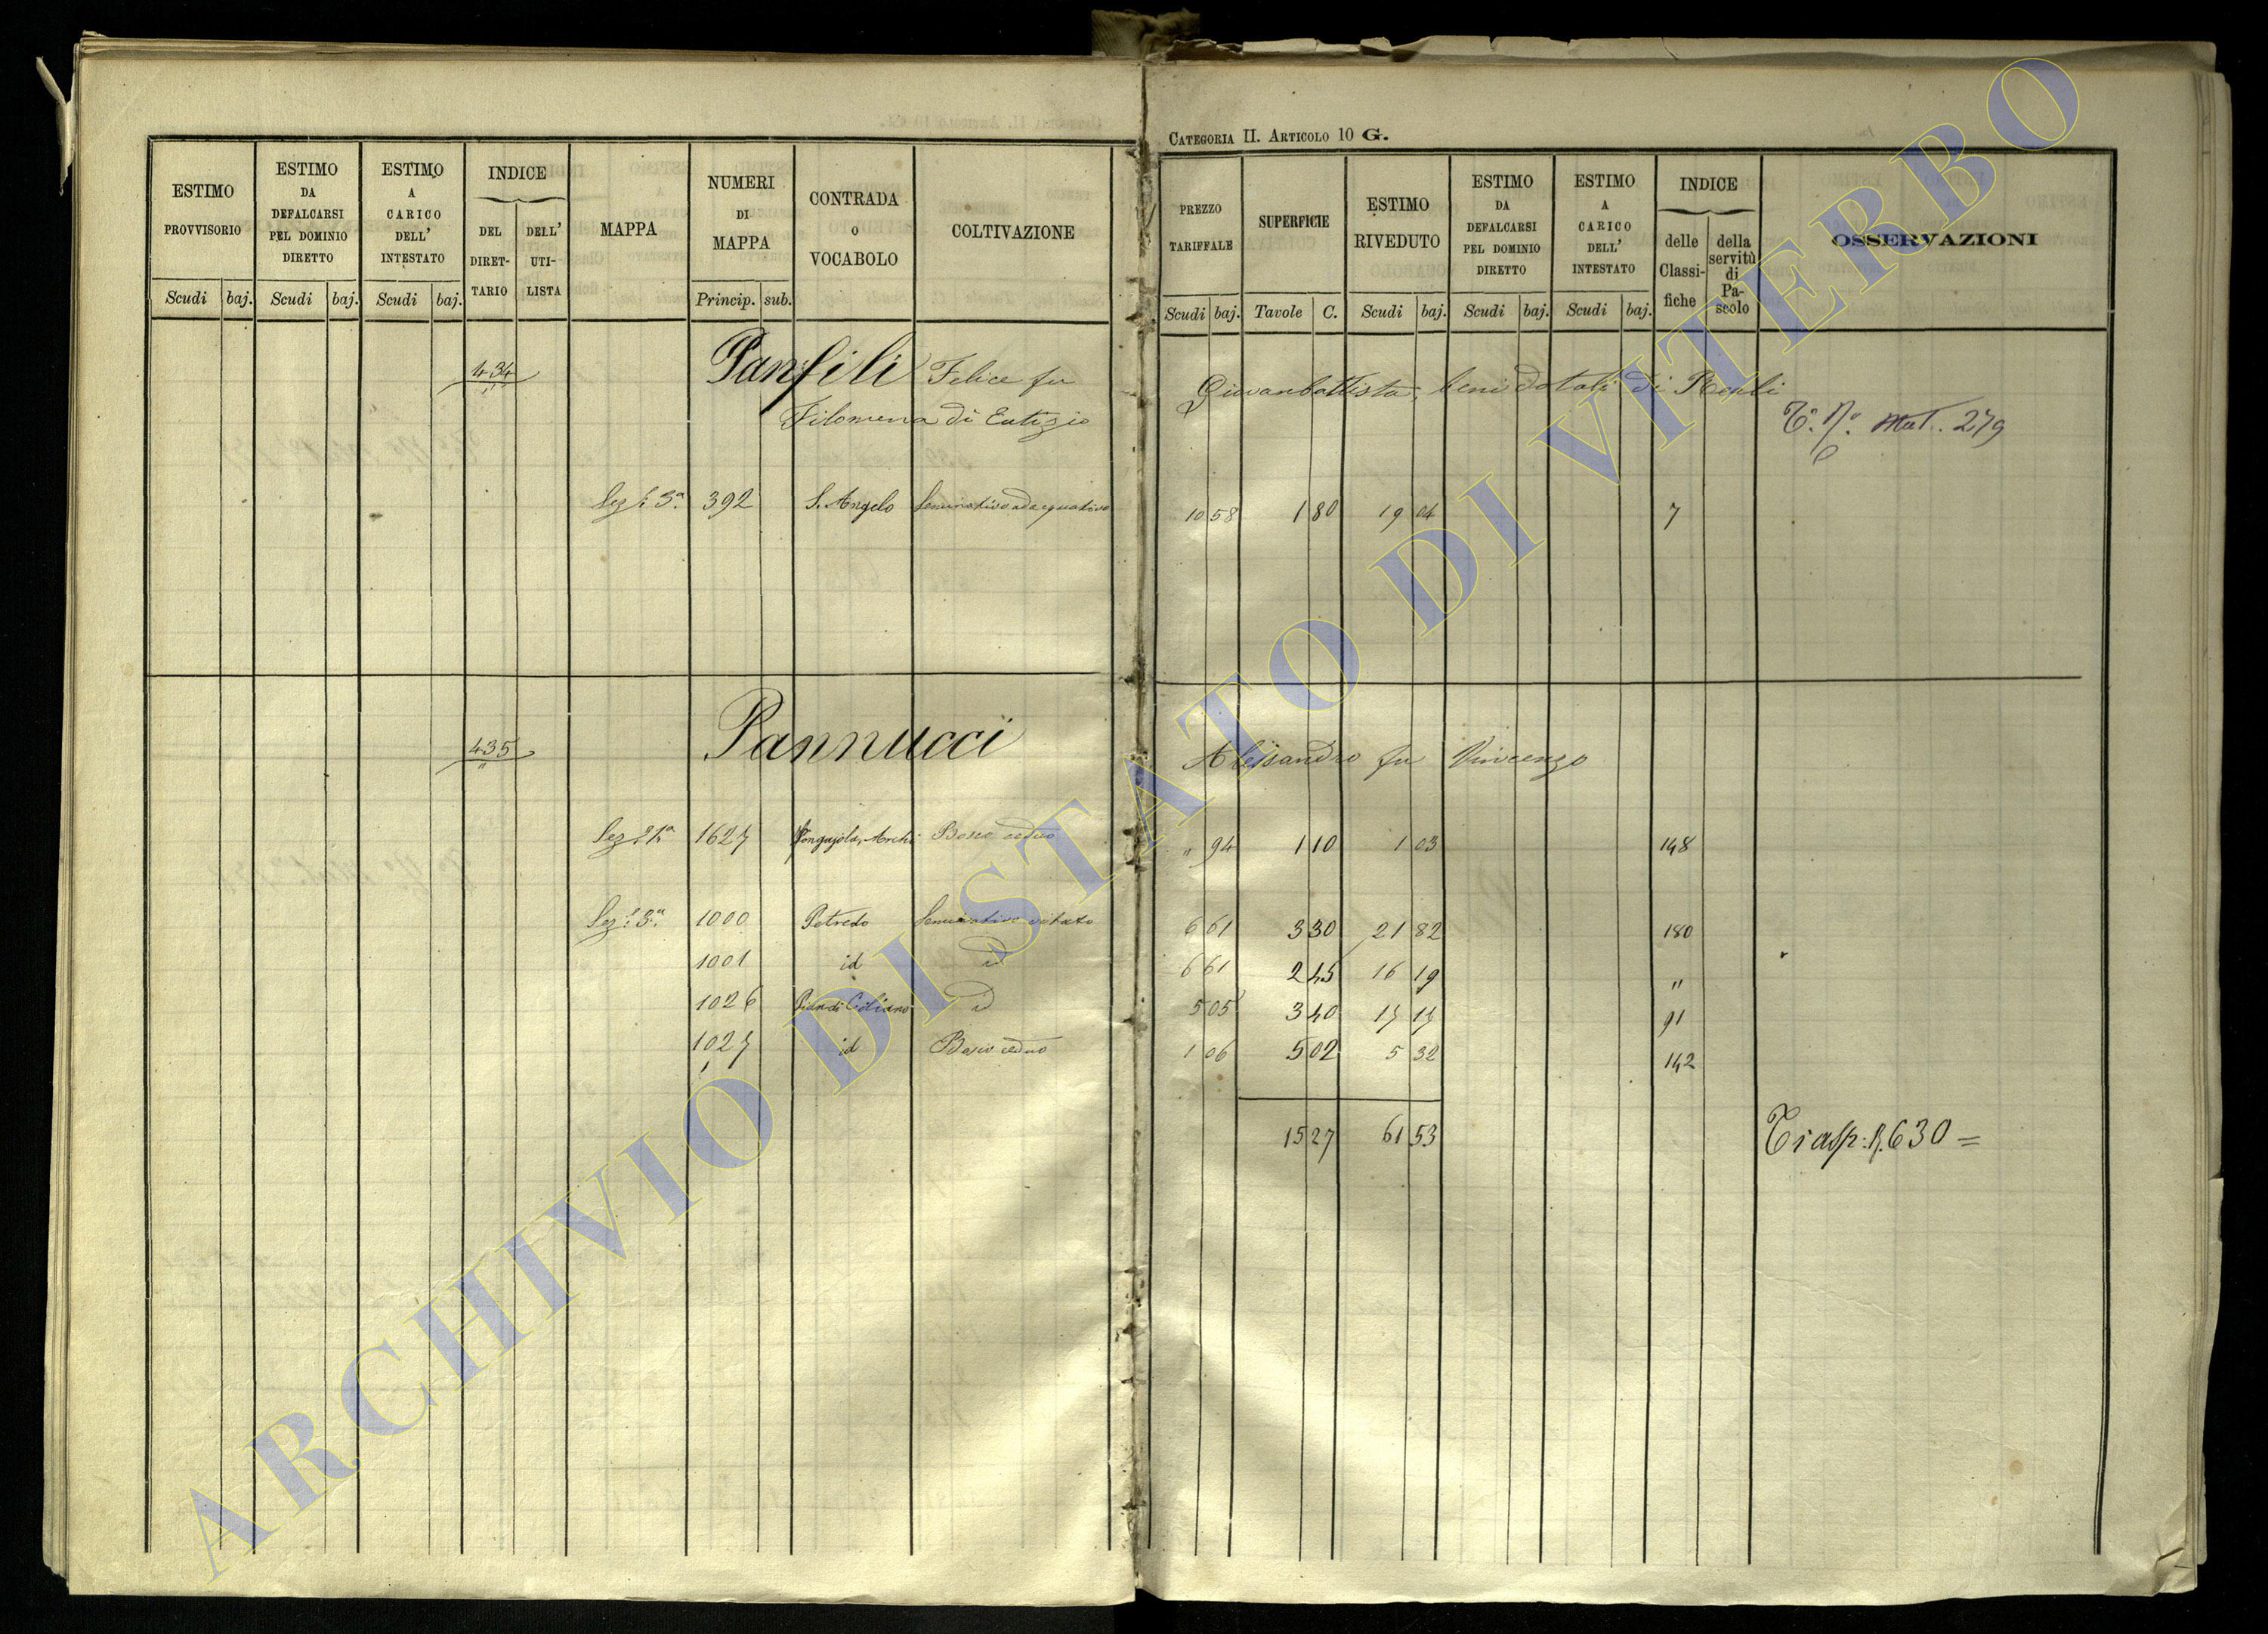 CATEGORIA II. ARTICOLO 10 G.
ESTIMO PROVVISORIO
ESTIMO DA DEFALCARSI PEL DOMINIO DIRETTO
ESTIMO A CARICO DELL' INTESTATO
INDICE
DEL DIRET-TARIO
DELL' UTI-LISTA
MAPPA
NUMERI DI MAPPA
CONTRADA O VOCABOLO
COLTIVAZIONE
Scudi baj. Scudi baj. Scudi baj. Princip. sub.
PREZZO TARIFFALE
SUPERFICIE
ESTIMO RIVEDUTO
ESTIMO DA DEFALCARSI PEL DOMINIO DIRETTO
ESTIMO A CARICO DELL' INTESTATO
INDICE
delle Classi-fiche
della servitù di Pa-scolo
OSSERVAZIONI
Scudi baj. Tavole C. Scudi baj. Scudi baj. Scudi baj.
434 Panfili Felice fu Giovanbattista, beni dotali di
Filomena di Eutizio
Mut. 279
Sez. 3ª 392 S. Angelo Seminativo adacquativo 10 58 1 80 19 04 7
435 Pannucci Alessandro fu Vincenzo
1627 Bosco ceduo " 94 1 10 1 03 148
Sez. 3ª 1000 Petreto Seminativo vitato 6 61 3 30 21 82 180
1001 id id 6 61 2 45 16 19 "
1026 id 5 05 3 40 17 17 91
1027 id Bosco ceduo 1 06 5 02 5 32 142
15 27 61 53
630 =
ARCHIVIO DI STATO DI VITERBO